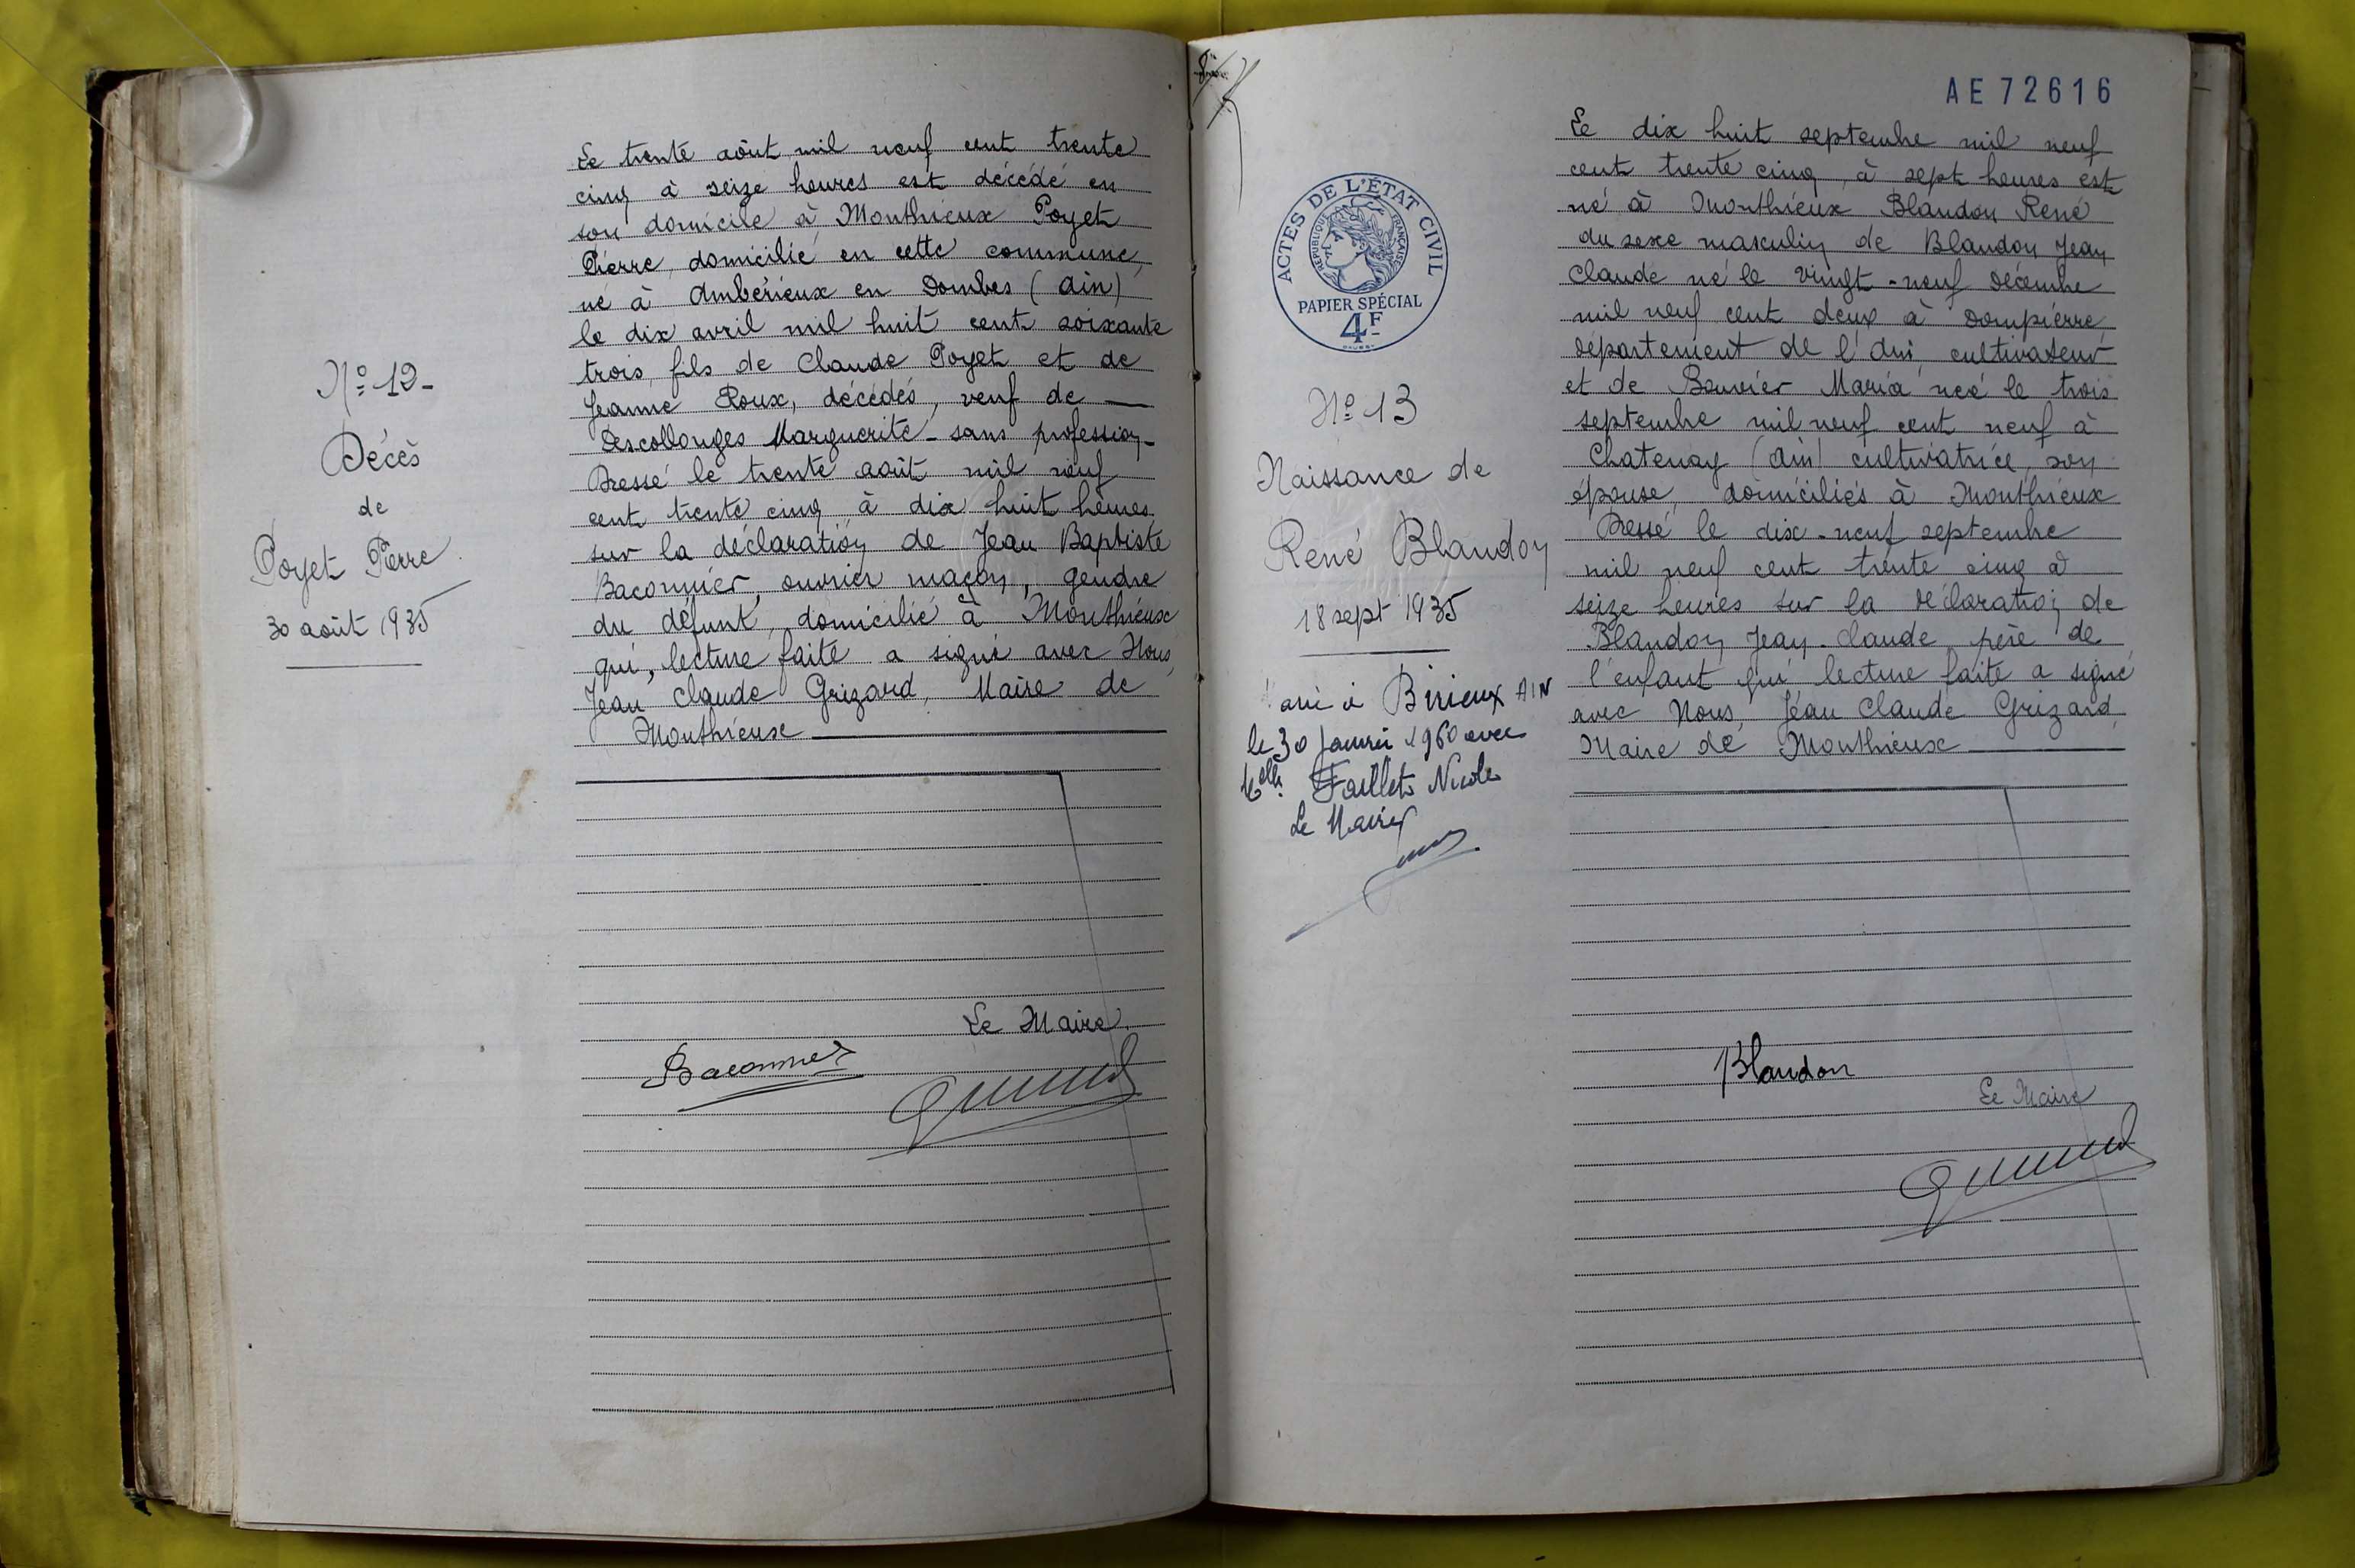 N° 12-
Décès
de
Poyet Pierre
30 août 1935
Le trente août mil neuf cent trente
cinq à seize heures est décédé en
son domicile à Monthieux Poyet
Pierre, domicilié en cette commune,
né à Ambérieux en Dombes (Ain)
le dix avril mil huit cent soixante
trois, fils de Claude Poyet et de
Jeanne Roux, décédés, veuf de —
Descollonges Marguerite - sans profession -
Dressé le trente août mil neuf
cent trente cinq à dix huit heures
sur la déclaration de Jean Baptiste
Baconnier, ouvrier maçon, gendre
du défunt, domicilié à Monthieux
qui, lecture faite a signé avec Nous,
Jean Claude Grizard, Maire de
Monthieux —
Le Maire
Baconnier
AE 72616
ACTES DE L'ÉTAT CIVIL
RÉPUBLIQUE FRANÇAISE
PAPIER SPÉCIAL
4F
N° 13
Naissance de
René Blandon
18 sept 1935
arié à Birieux AIN
le 30 Janvier 1960 avec
Melle Faillet Nicole
Le Maire
Le dix huit septembre mil neuf
cent trente cinq, à sept heures est
né à Monthieux Blandon René
du sexe masculin de Blandon Jean
Claude né le vingt-neuf décembre
mil neuf cent deux à Dompierre,
département de l'Ain cultivateur
et de Bouvier Maria née le trois
septembre mil neuf cent neuf à
Chatenay (Ain) cultivatrice, son
épouse, domiciliés à Monthieux
Dressé le dix-neuf septembre
mil neuf cent trente cinq à
seize heures sur la déclaration de
Blandon Jean-Claude père de
l'enfant qui lecture faite a signé
avec Nous, Jean Claude Grizard,
Maire de Monthieux —
Blandon
Le Maire